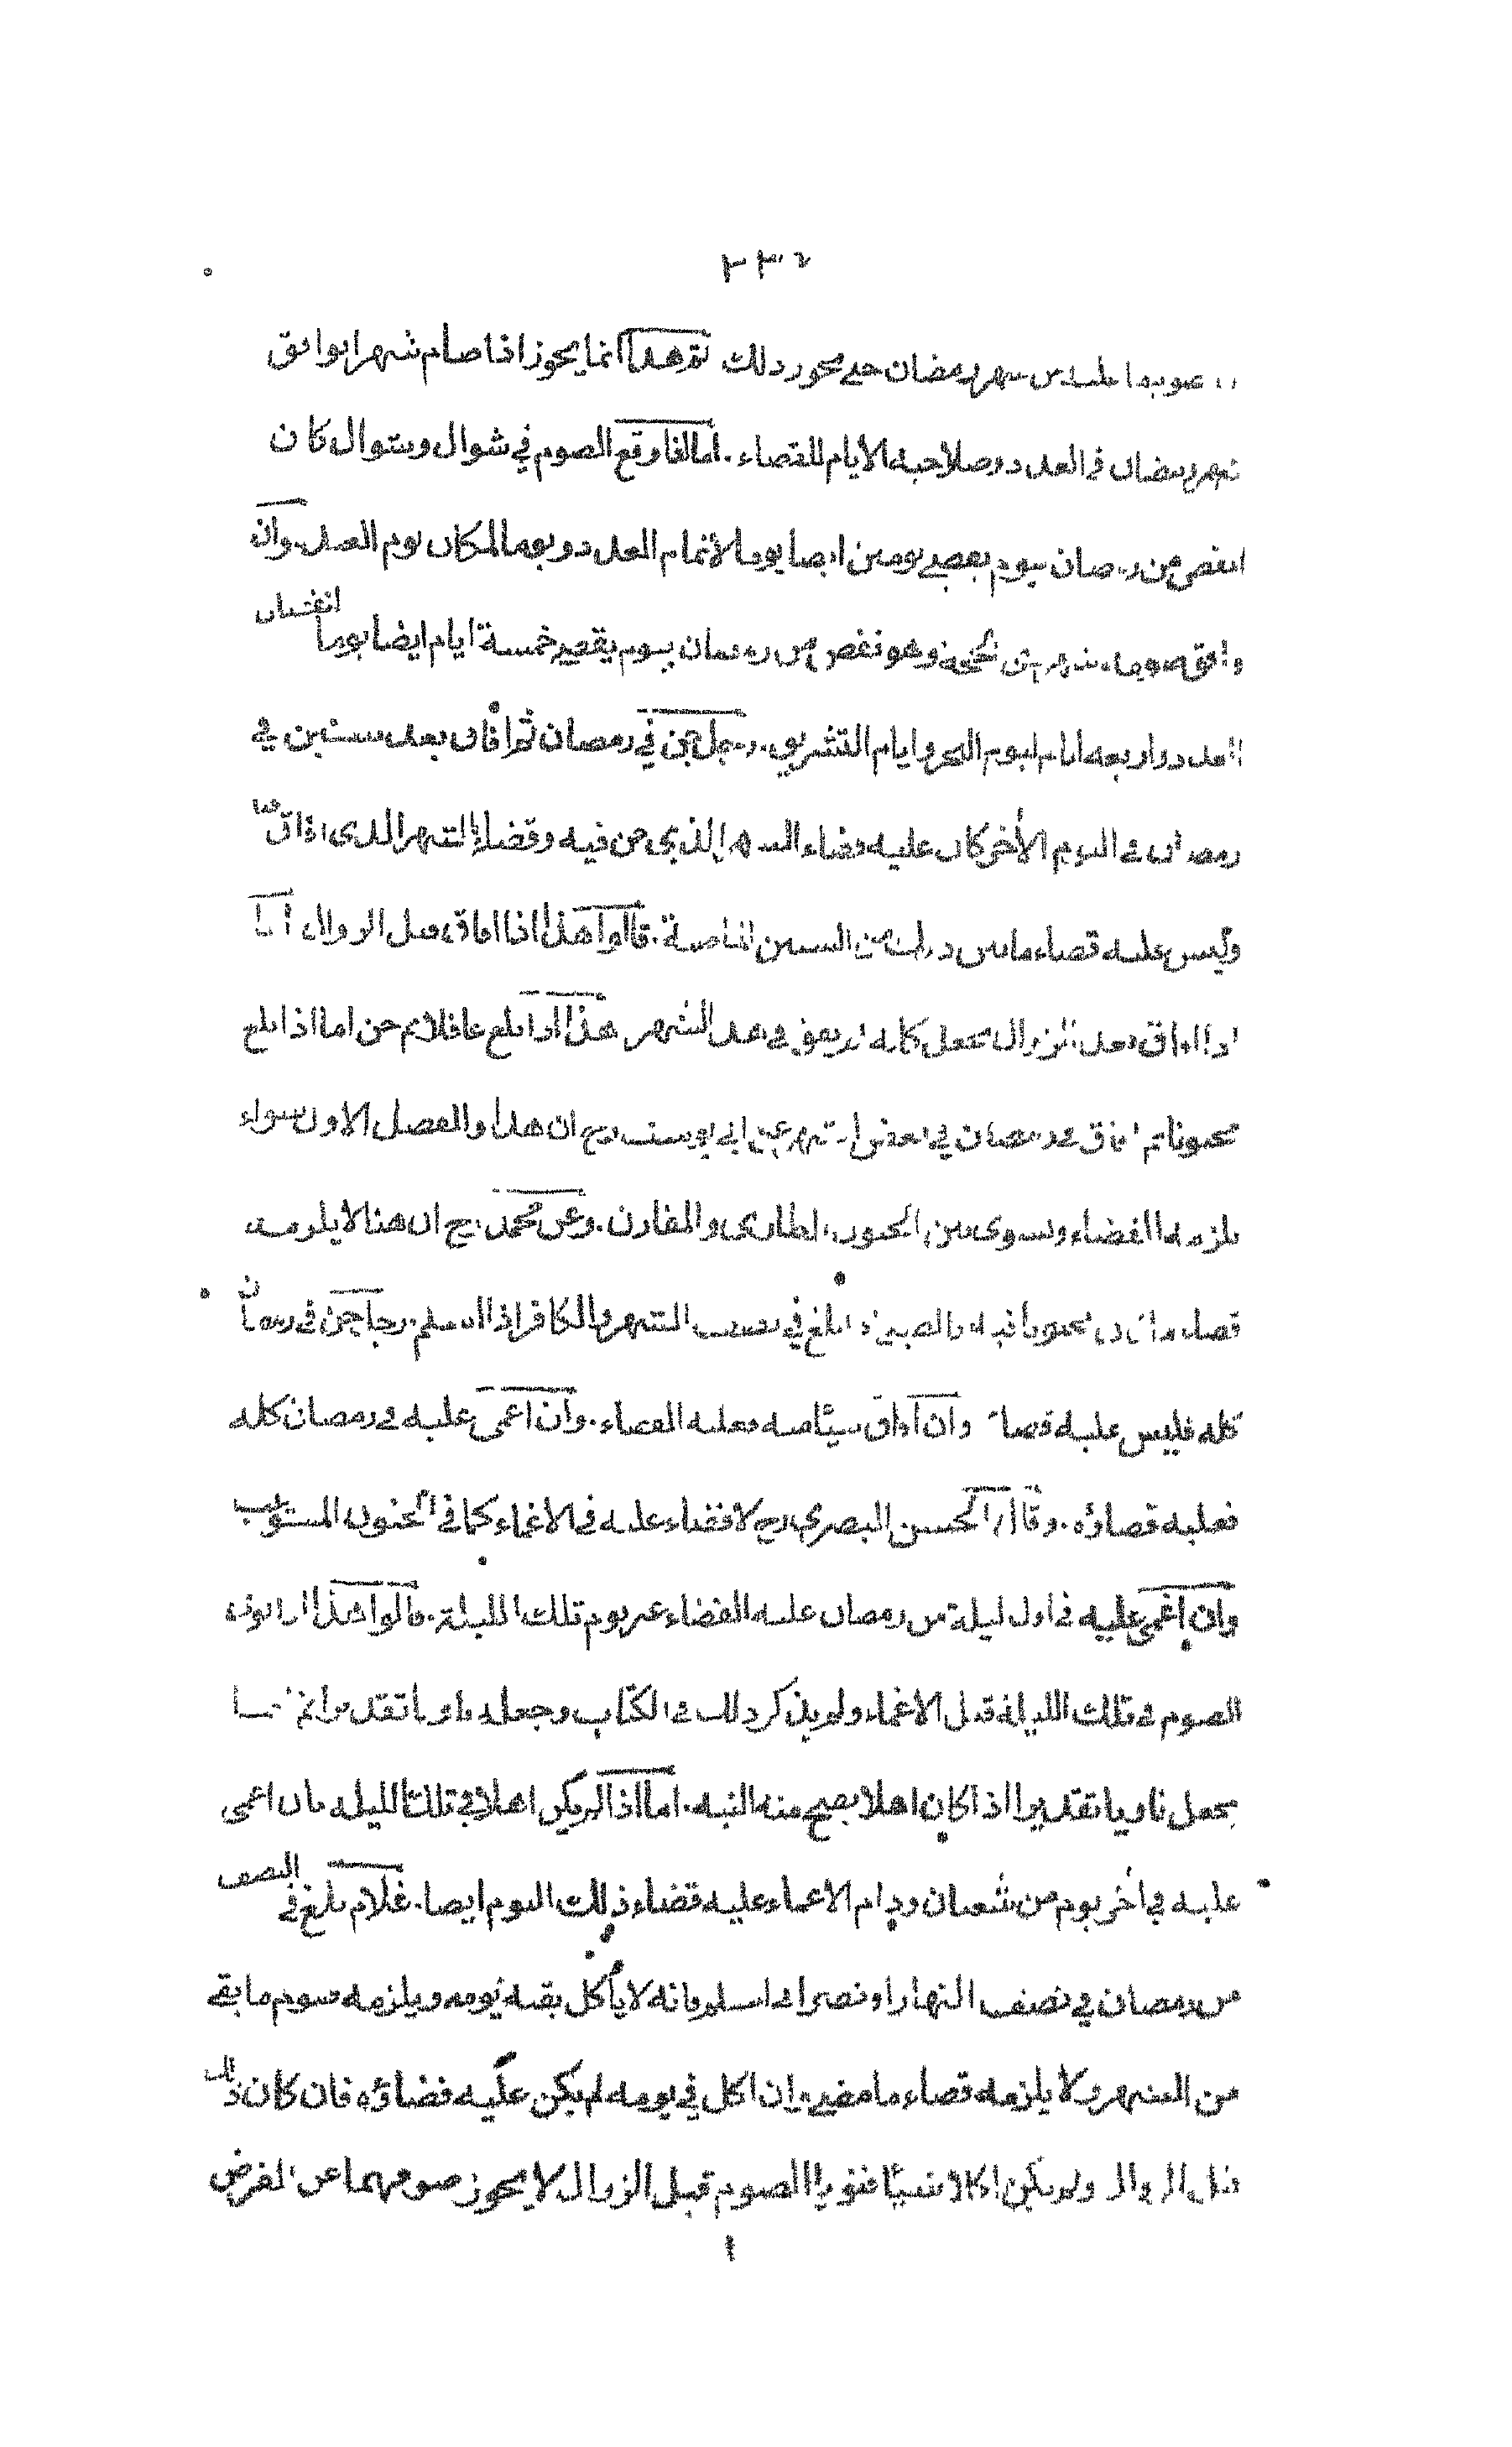 ٢٣٢
شهر رمضان حتى يجوز ذلك ثم هذا انما يجوز اذا صام شهرا يوافق
شهر رمضان في العدد وصلاحية الأيام للقضاء. اما لذا وقع الصوم في شوال وشوال كان
انقص من رمضان بيوم يقضي يومين ايضا يوما لاتمام العدد ويوما لمكان يوم العيد. وان
وافق صومه شهر ذي الحجة وهو نقص من رمضان بيوم يقضي خمسة ايام ايضا يوما انقصان
العدد واربعة ايام ليوم النحر وايام التشريق. رجل جن في رمضان ثم افاق بعد سنين في
رمضان في اليوم الأخر كان عليه قضاء الشهر الذي جن فيه وقضاء الشهر الذي افاق فيه
وليس عليه قضاء ما بين ذلك من السنين الماضية. قالوا هذا اذا افاق قبل الزوال اما
اذا افاق بعد الزوال يجعل كانه لم يفق في هذا الشهر هذا اذا بلغ عاقلا ثم جن اما اذا بلغ
مجنونا ثم افاق في رمضان في بعض الشهر عن ابي يوسف رح ان هذا والفصل الاول سواء
يلزمه القضاء وسوى بين الجنون الطاري والمقارن. وعن محمد رح ان هنا لا يلزمه
قضاء ما كان مجنونا فيه كالصبي اذا بلغ في نصف الشهر والكافر اذا اسلم. رجل جن في رمضان
كله فليس عليه قضاء وان افاق شيئا منه فعليه القضاء. وان اغمى عليه في رمضان كله
فعليه قضاؤه. وقال الحسن البصري رح لا قضاء عليه في الاغماء كما في الجنون المستوعب
وان اغمى عليه في اول ليلة من رمضان عليه القضاء غير يوم تلك الليلة. قالوا هذا اذا نوى
الصوم في تلك الليلة قبل الاغماء ولم يذكر ذلك في الكتاب وجعله ناويا تقديرا وانما
يجعل ناويا تقديرا اذا كان اهلا يصح منه النية. اما اذا لم يكن اهلا في تلك الليلة بان اغمى
عليه في أخر يوم من شعبان ودام الاغماء عليه قضاء ذلك اليوم ايضا. غلام بلغ في النصف
من رمضان في نصف النهار او نصراني اسلم فانه لا يأكل بقية يومه ويلزمه صوم ما بقي
من الشهر ولا يلزمه قضاء ما مضى وان اكل في يومه لم يكن عليه قضاؤه فان كان ذلك
قبل الزوال ولم يكن اكلا شيئا فنويا الصوم قبل الزوال لا يجوز صومهما عن الفرض